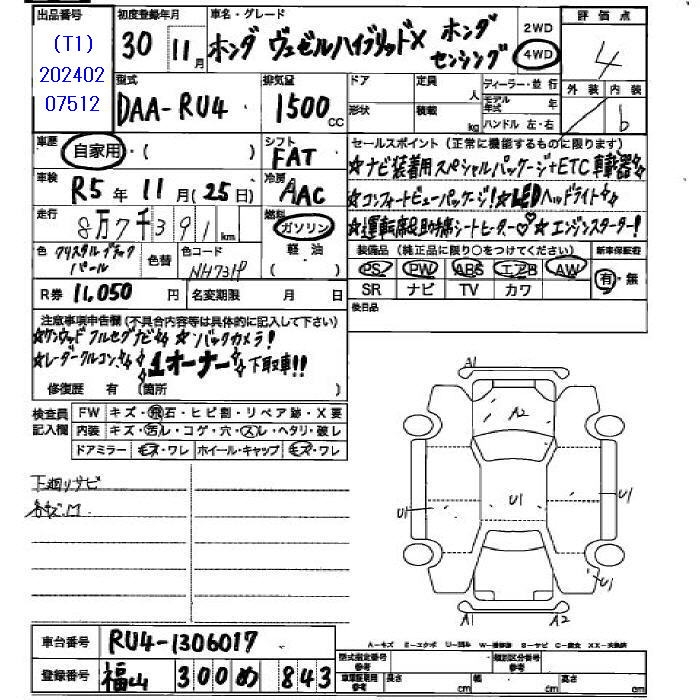 出品番号 初度登録年月 車名・グレード 2WD 評価点
(T1) 30 11月 ホンダ ヴェゼルハイブリッドX ホンダセンシング 4WD 4
202402
07512
型式 排気量 ドア 定員 人 ディーラー・並行 外装 内装
DAA-RU4 1500CC 形状 積載 kg モデル年式 年 b
ハンドル 左・右
車歴 自家用・( ) シフト FAT セールスポイント(正常に機能するものに限ります)
☆ナビ装着用スペシャルパッケージ+ETC車載器☆
車検 R5年11月(25日) 冷房 AAC ☆コンフォートビューパッケージ!☆LEDヘッドライト☆
走行 8万7千391km 燃料 ガソリン ☆運転席&助手席シートヒーター♡☆エンジンスターター!
軽油 ( )
色 クリスタルブラックパール 色替 色コード NH731P 装備品(純正品に限り○をつけてください) 新車保証書
PS PW ABS エアB AW 有・無
R券 11,050円 名変期限 月 日 SR ナビ TV カワ
後日品
注意事項申告欄(不具合内容等は具体的に記入して下さい)
☆ケンウッドフルセグナビ☆☆バックカメラ!
☆レーダークルコン☆1オーナー☆下取車!!
修復歴 有 (箇所 )
検査員記入欄 FW キズ・飛石・ヒビ割・リペア跡・X要
内装 キズ・汚レ・コゲ・穴・スレ・ヘタリ・破レ
ドアミラー キズ・ワレ ホイール・キャップ キズ・ワレ
下廻りサビ
各キズ,M
A1
A2
U1
U1
U1
U1
A1 A2
車台番号 RU4-1306017
A-キズ E-エクボ U-凹み W-補修跡 S-サビ C-腐食 XX-交換済
登録番号 福山 300 め 843
型式指定番号 参考 類別区分番号 参考
車庫証明用 参考 長さ cm 幅 cm 高さ cm